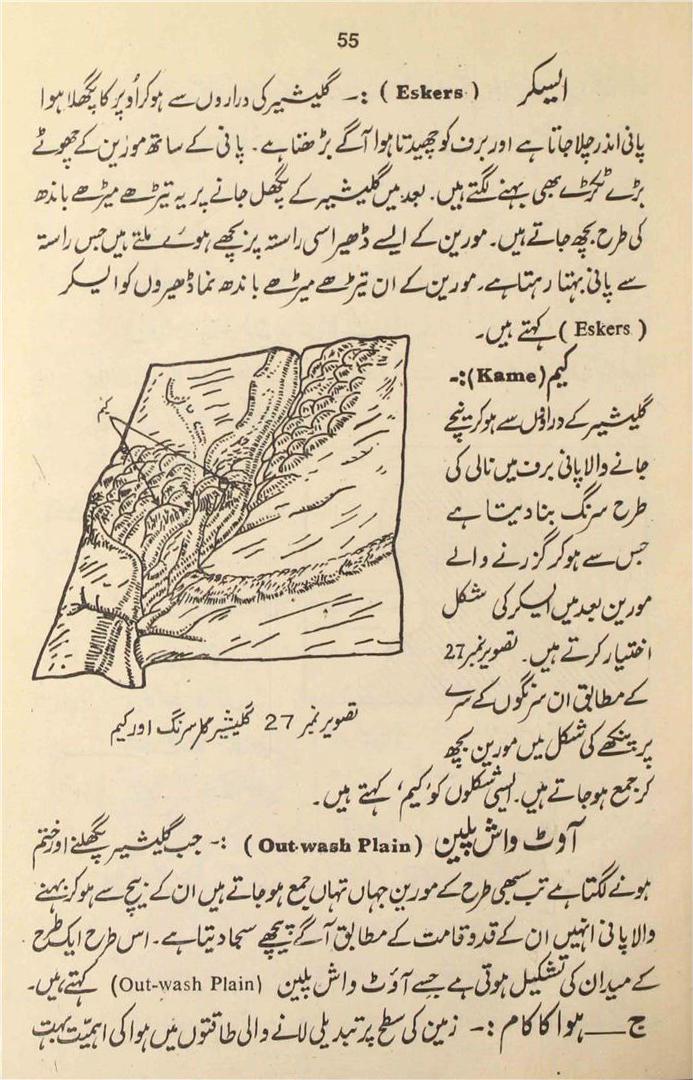 55
ایسکر (Eskers) :- گلیشیر کی دراروں سے ہو کر اُوپر کا پگھلا ہوا
پانی اندر چلا جاتا ہے اور برف کو چھیدتا ہوا آگے بڑھتا ہے۔ پانی کے ساتھ مورین کے چھوٹے
بڑے ٹکڑے بھی بہنے لگتے ہیں۔ بعد میں گلیشیر کے پگھل جانے پر یہ تیڑھے میڑھے باندھ
کی طرح بچھ جاتے ہیں۔ مورین کے ایسے ڈھیر اسی راستہ پر بچھے ہوئے ملتے ہیں جس راستہ
سے پانی بہتا رہتا ہے۔ مورین کے ان تیڑھے میڑھے باندھ نما ڈھیروں کو ایسکر
(Eskers) کہتے ہیں۔
کیم (Kame) :-
گلیشیر کے دراڑوں سے ہو کر نیچے
جانے والا پانی برف میں نالی کی
طرح سرنگ بنا دیتا ہے
جس سے ہو کر گزرنے والے
مورین بعد میں ایسکر کی شکل
اختیار کرتے ہیں۔ تصویر نمبر 27
کے مطابق ان سرنگوں کے سرے
پر پنکھے کی شکل میں مورین بچھ
کر جمع ہو جاتے ہیں۔ ایسی شکلوں کو ’کیم‘ کہتے ہیں۔
کیم
تصویر نمبر 27 گلیشیر سرنگ اور کیم
آوٹ واش پلین (Out-wash Plain) :- جب گلیشیر پگھلنے اور ختم
ہونے لگتا ہے تب سبھی طرح کے مورین جہاں تہاں جمع ہو جاتے ہیں ان کے بیچ سے ہو کر بہنے
والا پانی انہیں ان کے قد و قامت کے مطابق آگے پیچھے سجا دیتا ہے۔ اس طرح ایک طرح
کے میدان کی تشکیل ہوتی ہے جسے آؤٹ واش پلین (Out-wash Plain) کہتے ہیں۔
ج — ہوا کا کام :- زمین کی سطح پر تبدیلی لانے والی طاقتوں میں ہوا کی اہمیّت بہت